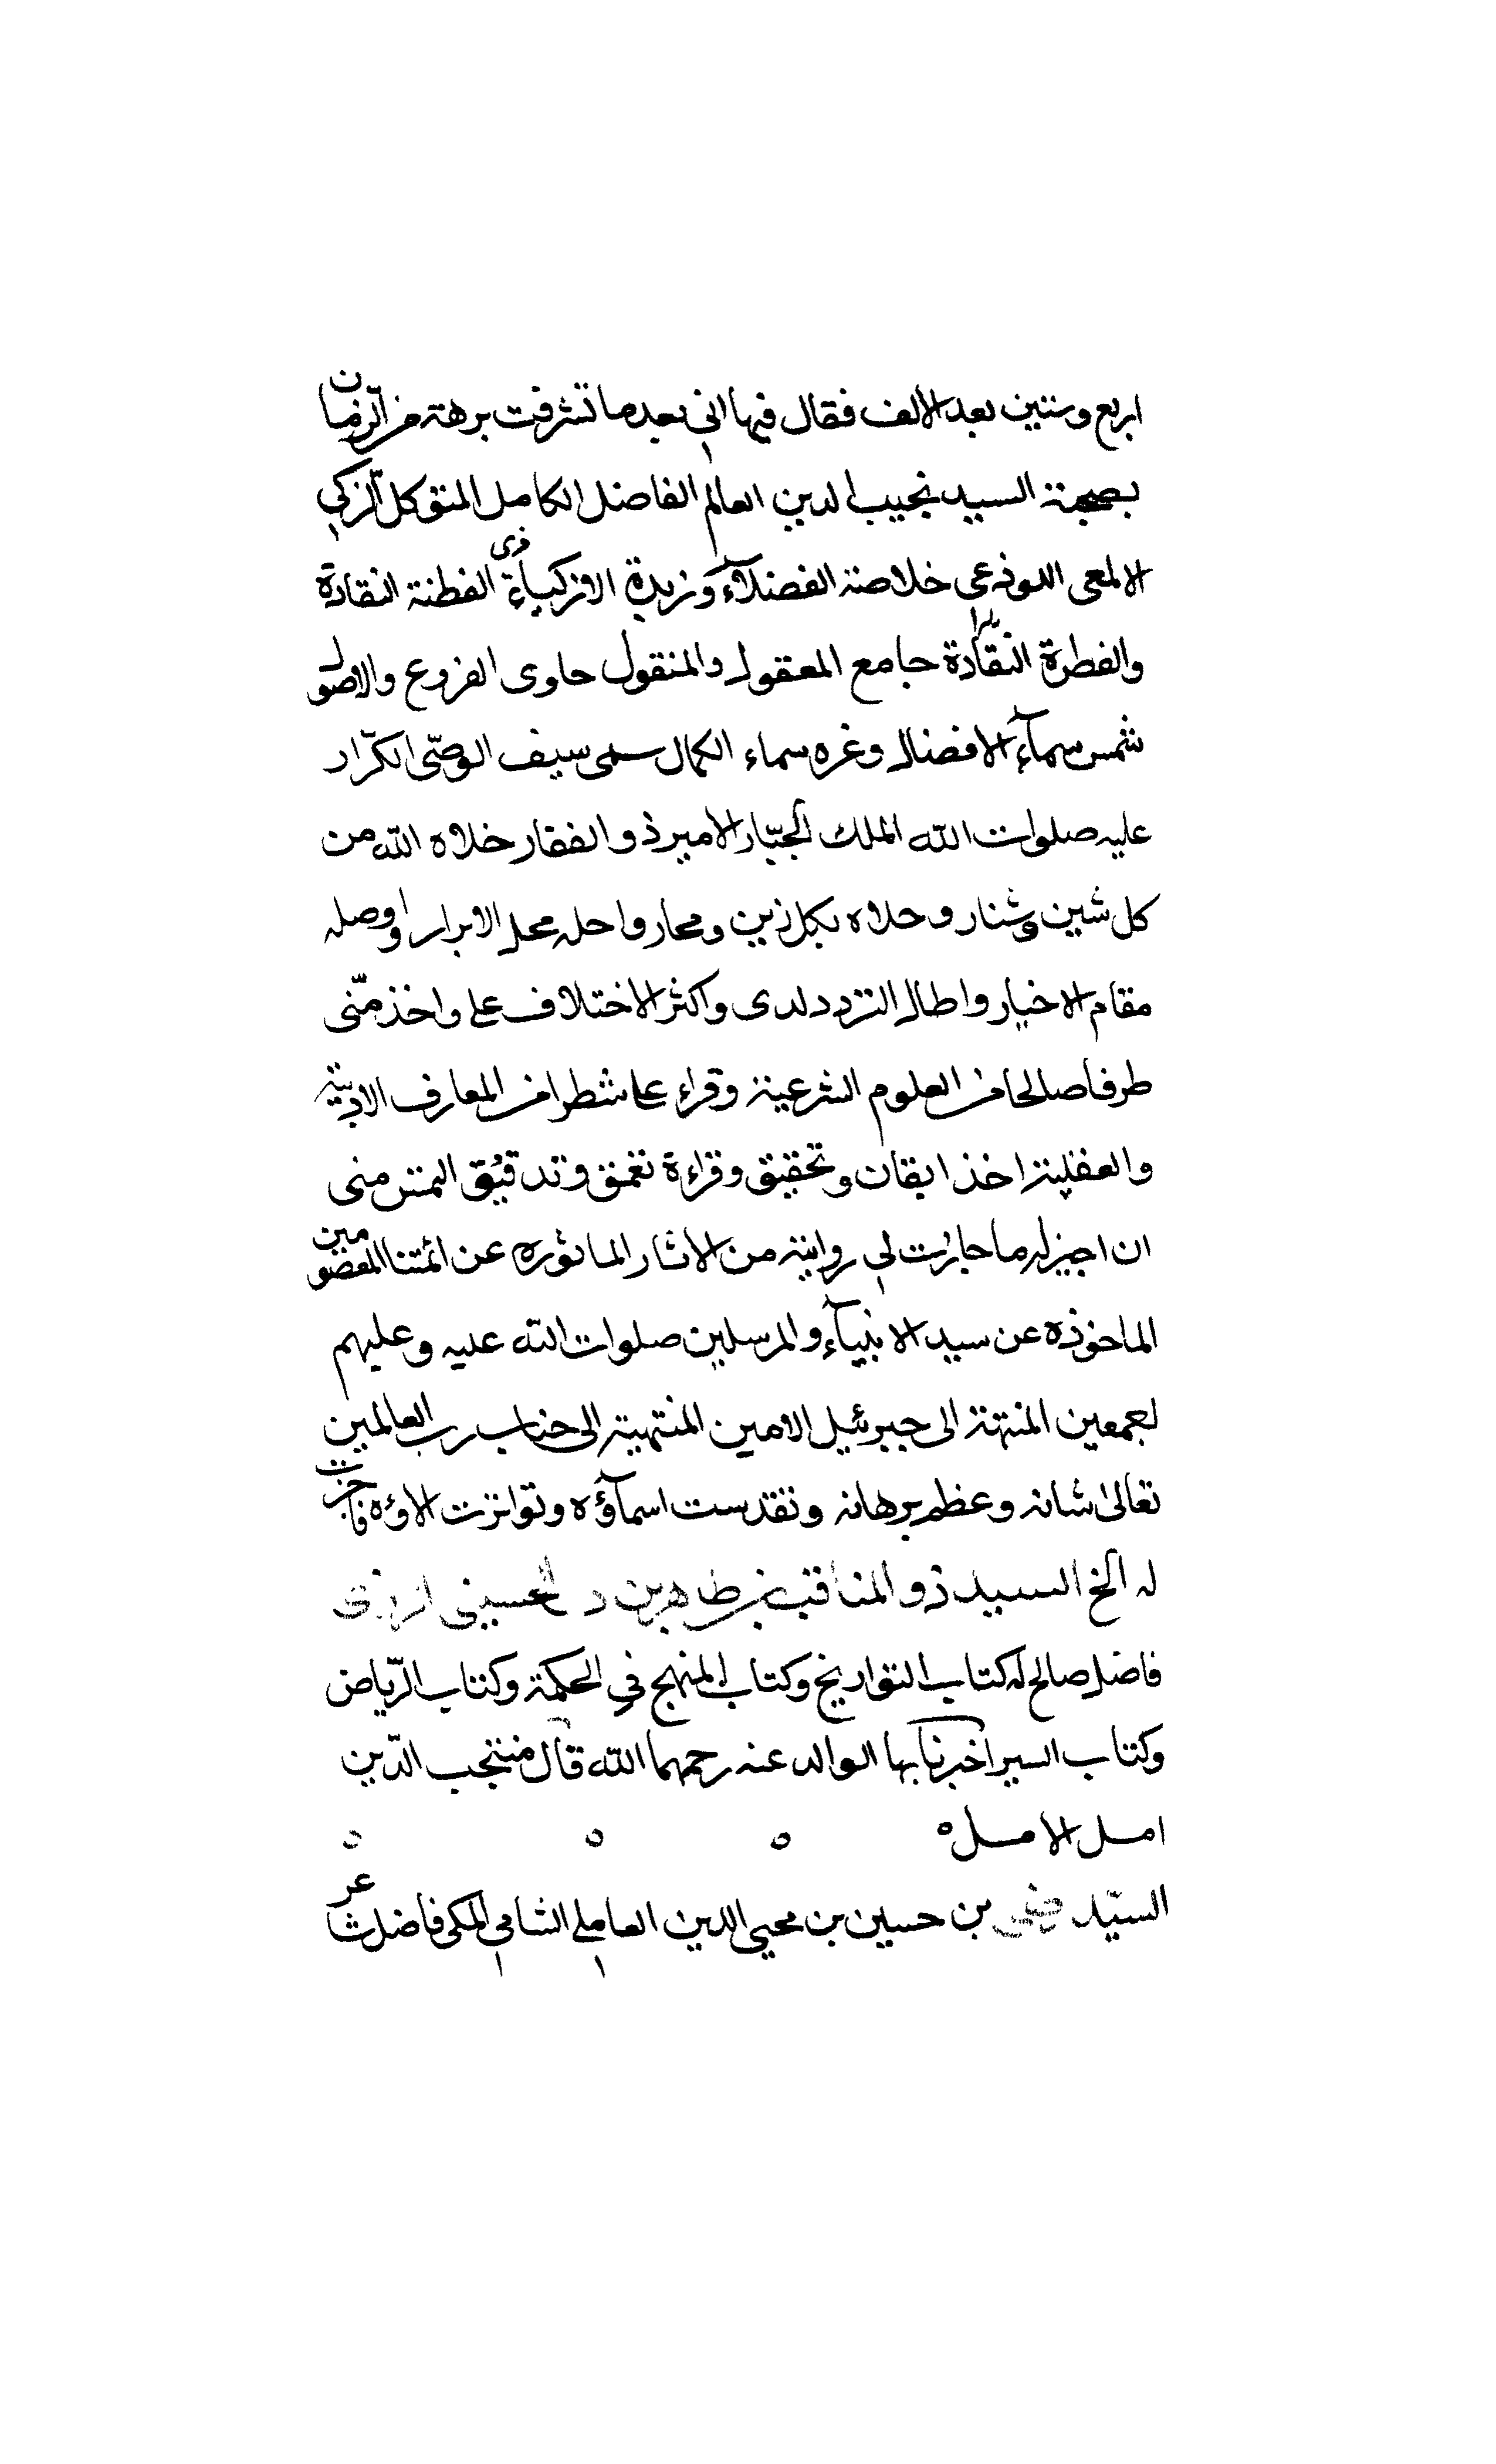 اربع وستين بعد الالف فقال فيها انى بعد ما تشرفت برهة من الزمان
بصحبة السيد نجيب الدين العالم الفاضل الكامل المتوكل الزكى
الالمعى اللوذعى خلاصة الفضلآء وزبدة الازكياء ذى الفطنة النقادة
والفطرة النقادة جامع المعقول والمنقول حاوى الفروع والاصول
شمس سمآء الافضال وغره سماء الكمال سمى سيف الوصّى الكرّار
عليه صلوات الله الملك الجبّار الامير ذو الفقار خلاه الله من
كل شين وشنار وحلاه بكل زين و واحله محل الابرار واوصله
مقام الاخيار واطال التردد لدى واكثر الاختلاف على واخذ منّى
طرفا صالحا من العلوم الشرعية وقراء على شطرا من المعارف الادبية
والعقلية اخذ ايقان وتحقيق وقراءة تعمق وتدقيق التمس منى
ان اجيز له ما جازت لى روايته من الاثار الماثوره عن ائمتنا المعصومين
الماخوذه عن سيد الانبيآء والمرسلين صلوات الله عليه وعليهم
اجمعين المنتهة الى جبرئيل الامين المنتهية الى جناب رب العالمين
تعالى شانه وعظم برهانه وتقدست اسمآؤه وتواترت الاؤه فاجزت
له الخ السيد ذو المناقب بن طاهر بن الحسينى الرازى
فاضل صالح له كتاب التواريخ وكتاب المنهج فى الحكمة وكتاب الرّياض
وكتاب السير اخبرنا بها الوالد عنه رحمهما الله قال منتجب الدّين
امل الامل ه ه ه ه
السيّد بن حسين بن محيى الدين العاملى الشامى المكى فاضل شاعر